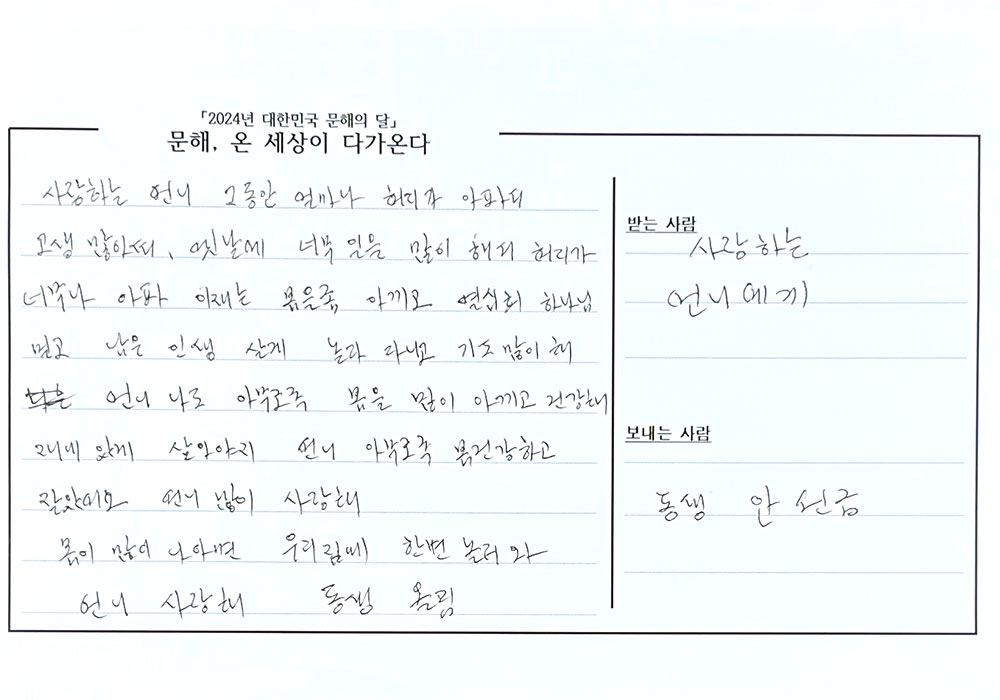 「2024년 대한민국 문해의 달」
문해, 온 세상이 다가온다
사랑하는 언니 그동안 얼마나 허리가 아파서
고생 많아써, 옛날에 너무 일을 많이 해서 허리가
너무나 아파 이재는 몸은좀 아끼고 열심히 하나님
믿고 남은 인생 살게 놀라 다니고 기도 많이 해
언니 나도 아무로족 몸을 많이 아끼고 건강해
살아야지 언니 아무로족 몸건강하고
잘았서요 언니 많이 사랑해
몸이 많이 나아면 우리림에 한번 놀러 와
언니 사랑해 동생 올림
받는 사람
사랑하는
언니에게
보내는 사람
동생 안선금